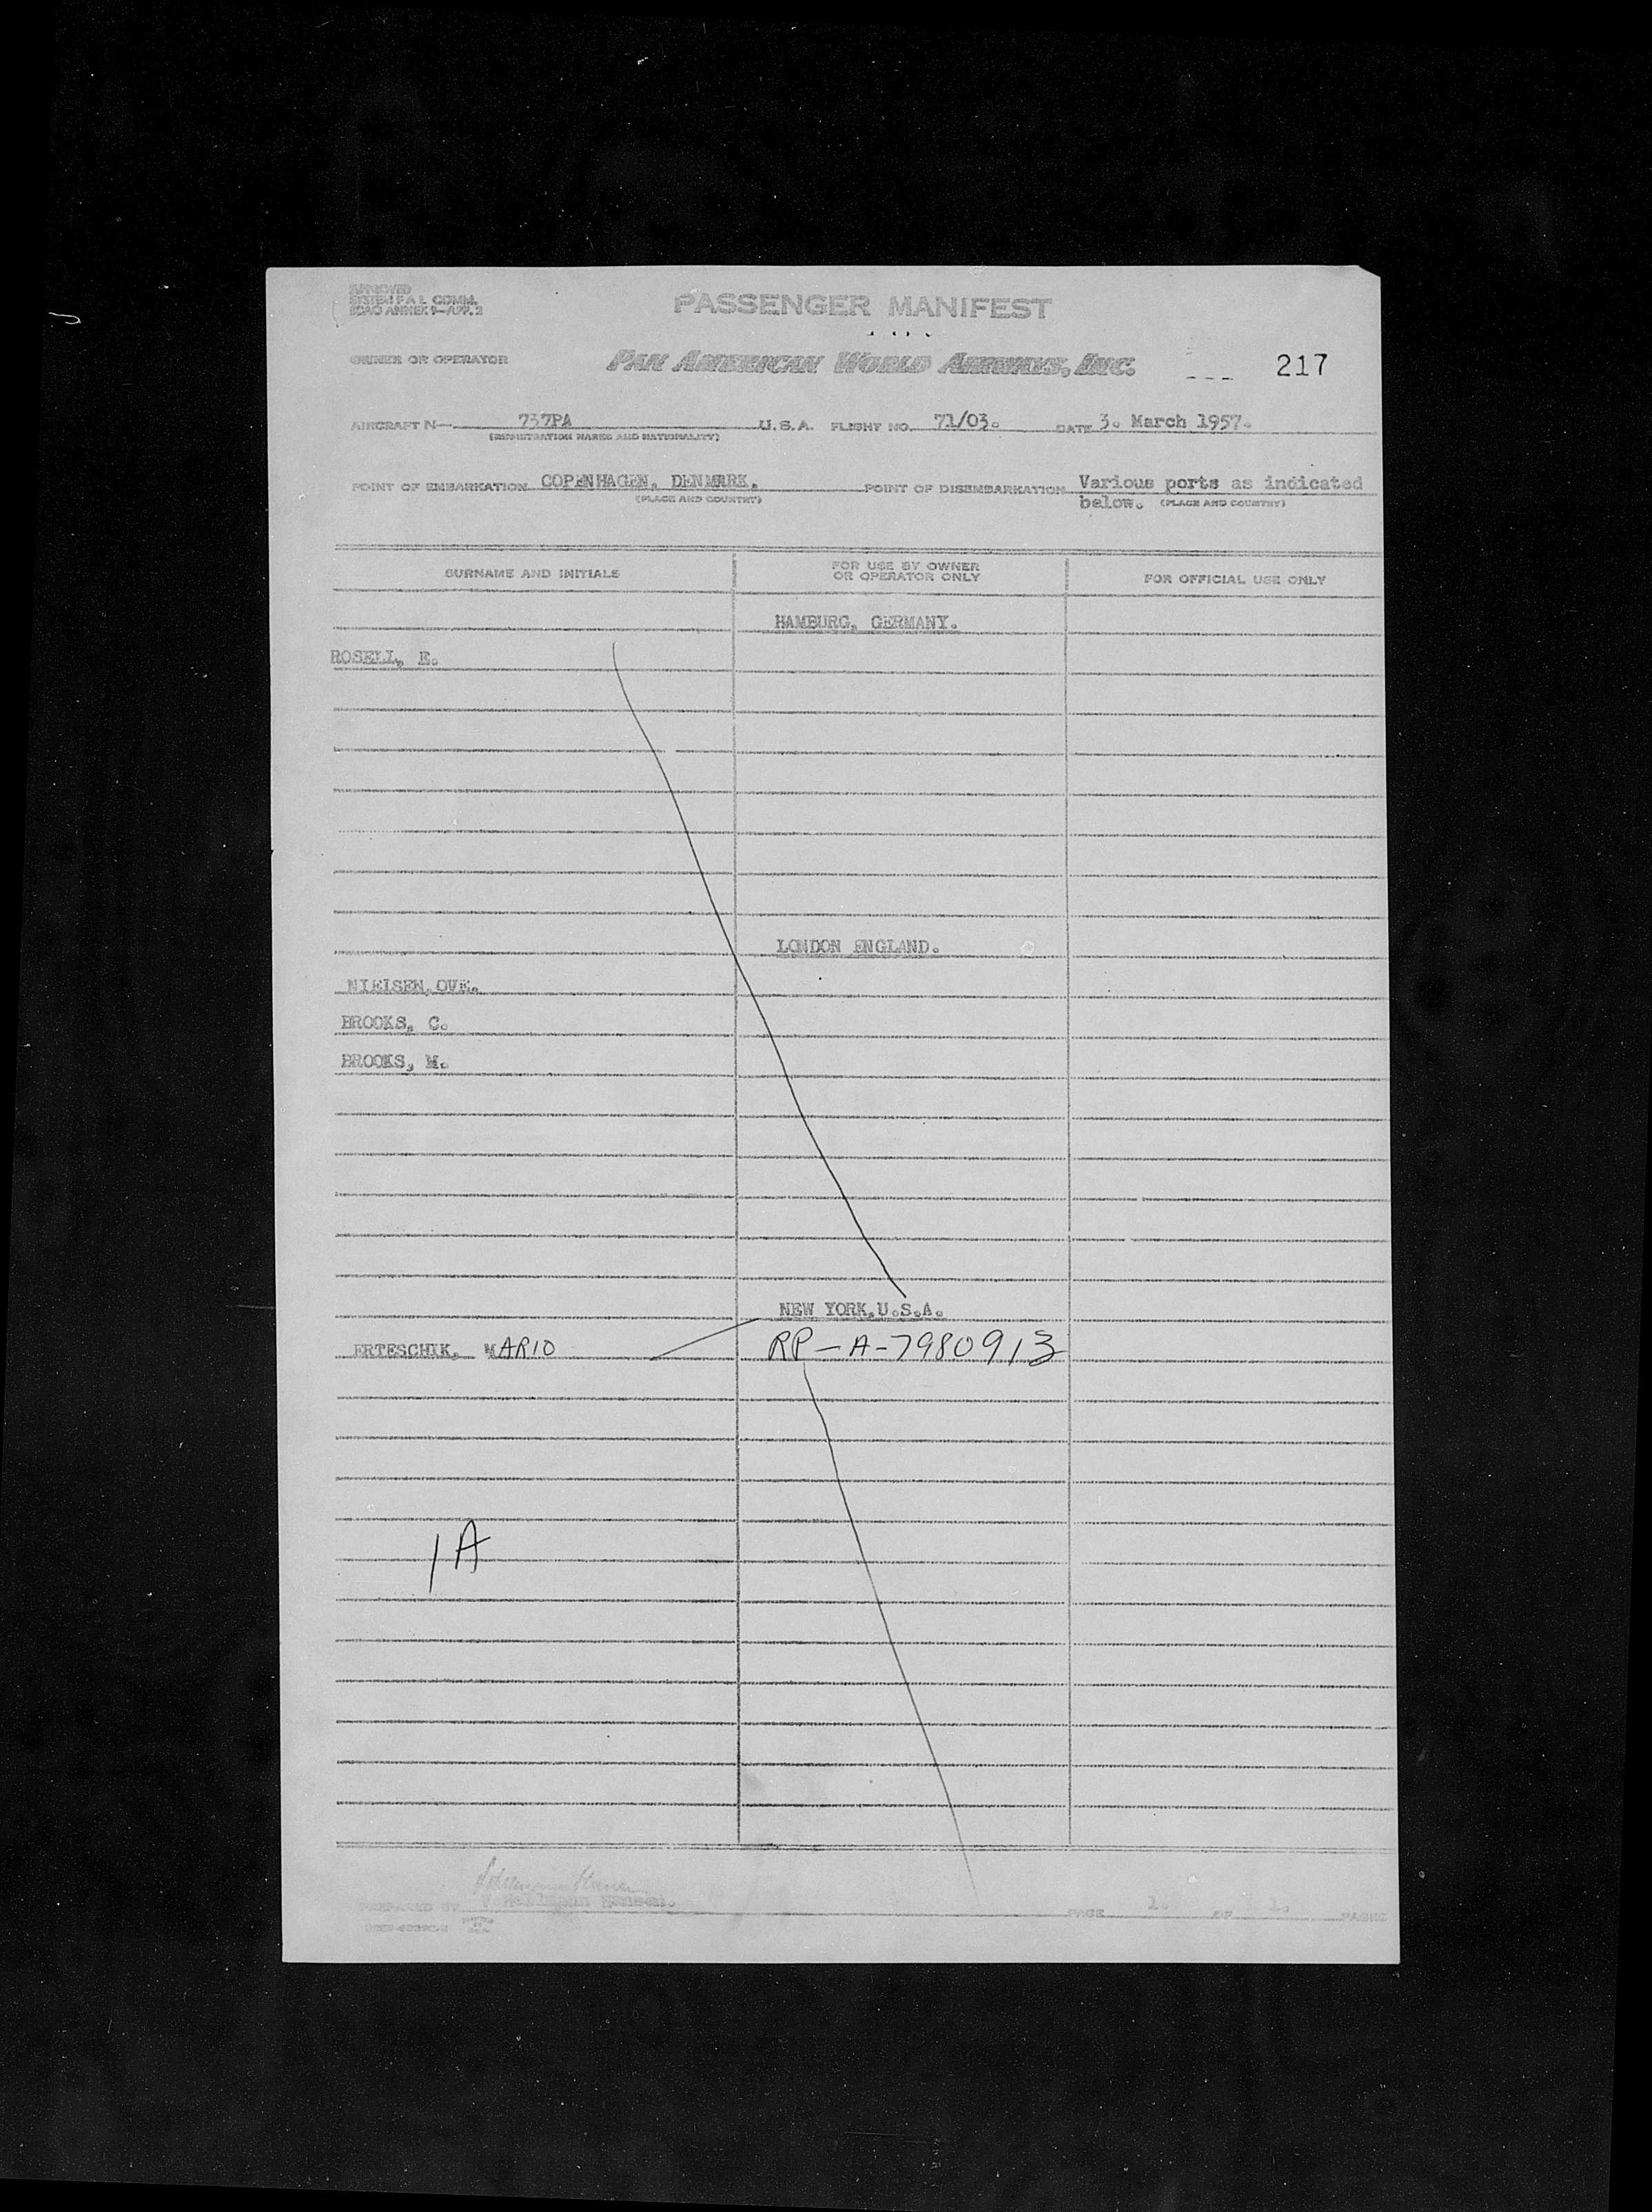 APPROVED
SYSTEM F A L COMM.
ICAO ANNEX 9—APP. 2
PASSENGER MANIFEST
OWNER OR OPERATOR PAN AMERICAN WORLD AIRWAYS, INC. 217
AIRCRAFT N— 737PA U.S.A. FLIGHT NO. 71/03. DATE 3. March 1957.
(REGISTRATION MARKS AND NATIONALITY)
POINT OF EMBARKATION COPENHAGEN, DENMARK. POINT OF DISEMBARKATION Various ports as indicated
(PLACE AND COUNTRY) below. (PLACE AND COUNTRY)
SURNAME AND INITIALS FOR USE BY OWNER OR OPERATOR ONLY FOR OFFICIAL USE ONLY
HAMBURG, GERMANY.
ROSELL, E.
LONDON ENGLAND.
NIELSEN, OVE.
BROOKS, C.
BROOKS, M.
NEW YORK, U.S.A.
ERTESCHIK, MARIO RP-A-7980913
1A
PREPARED BY V Hansen.
PAGE 1. OF 1. PAGES